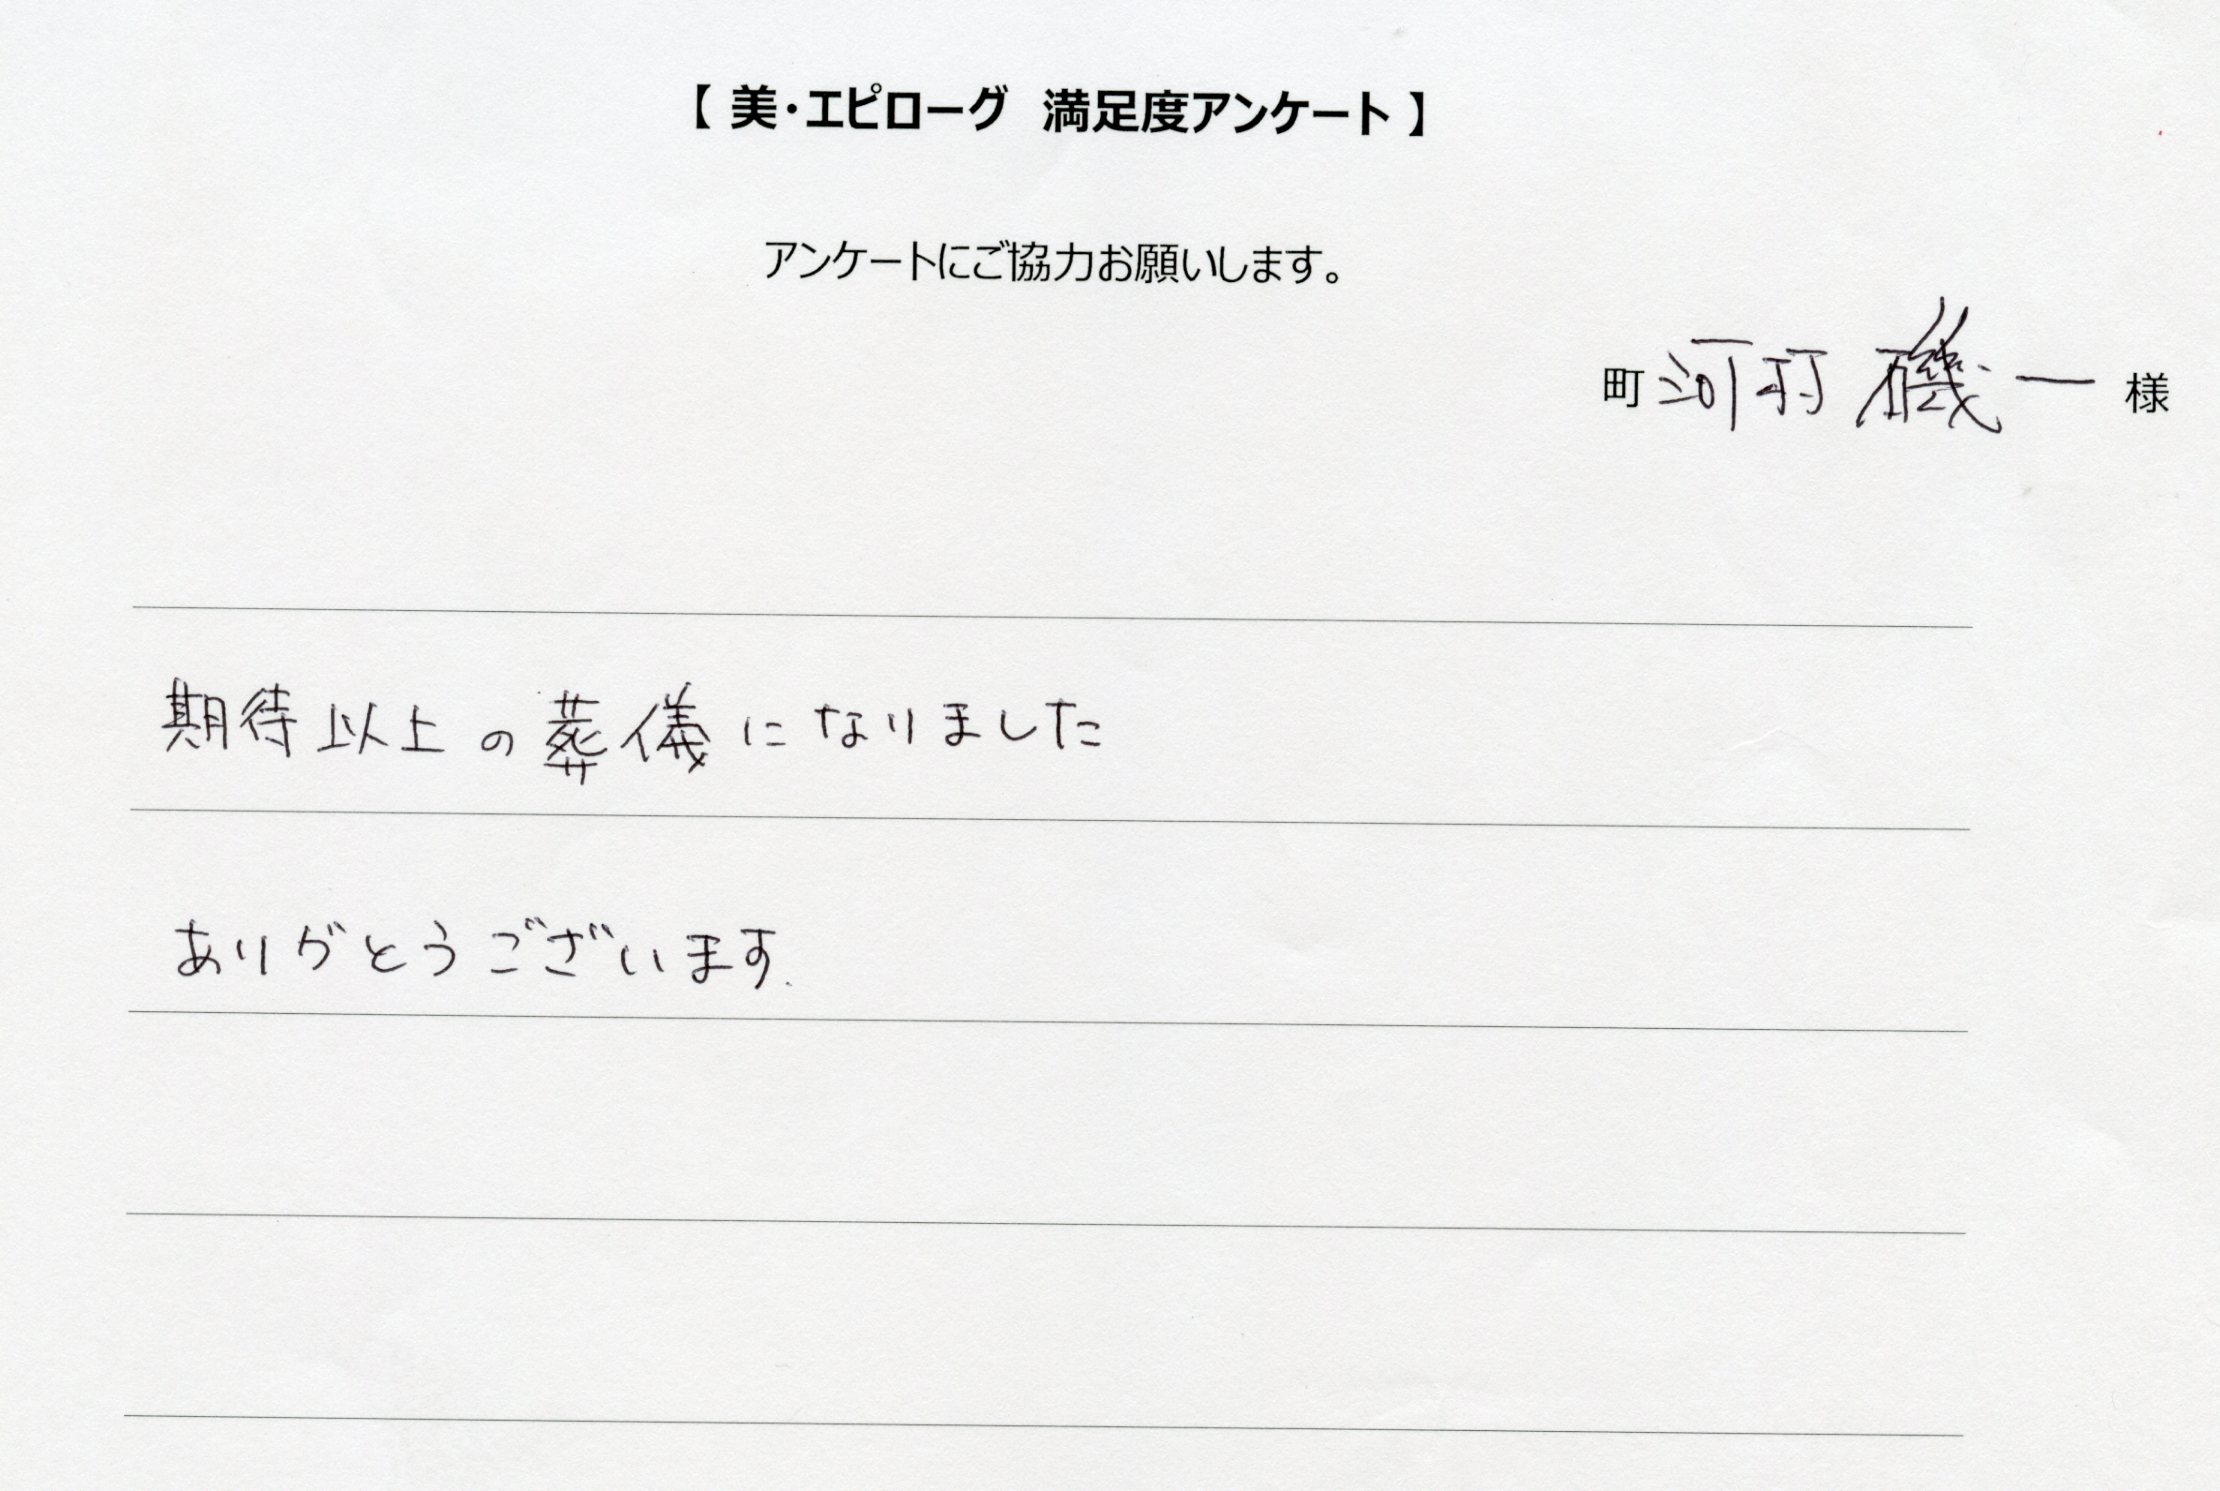 【 美・エピローグ　満足度アンケート 】
アンケートにご協力お願いします。
町 磯一 様
期待以上の葬儀になりました
ありがとうございます.